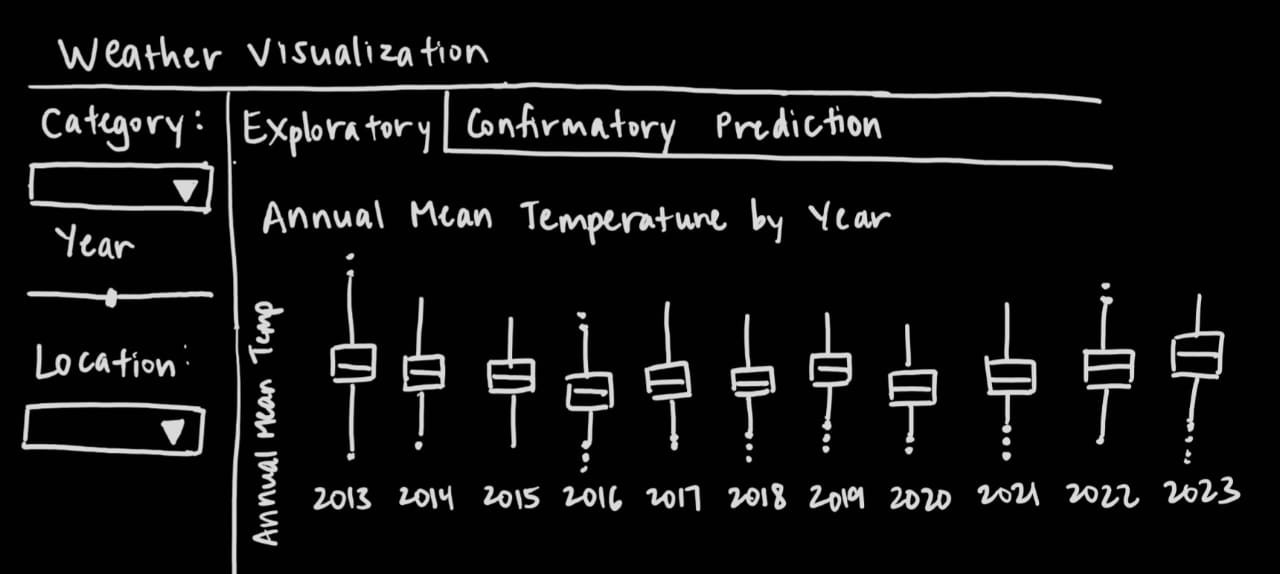 Weather Visualization
Category:
Year
Location:
Exploratory Confirmatory Prediction
Annual Mean Temperature by Year
Annual Mean Temp
2013 2014 2015 2016 2017 2018 2019 2020 2021 2022 2023